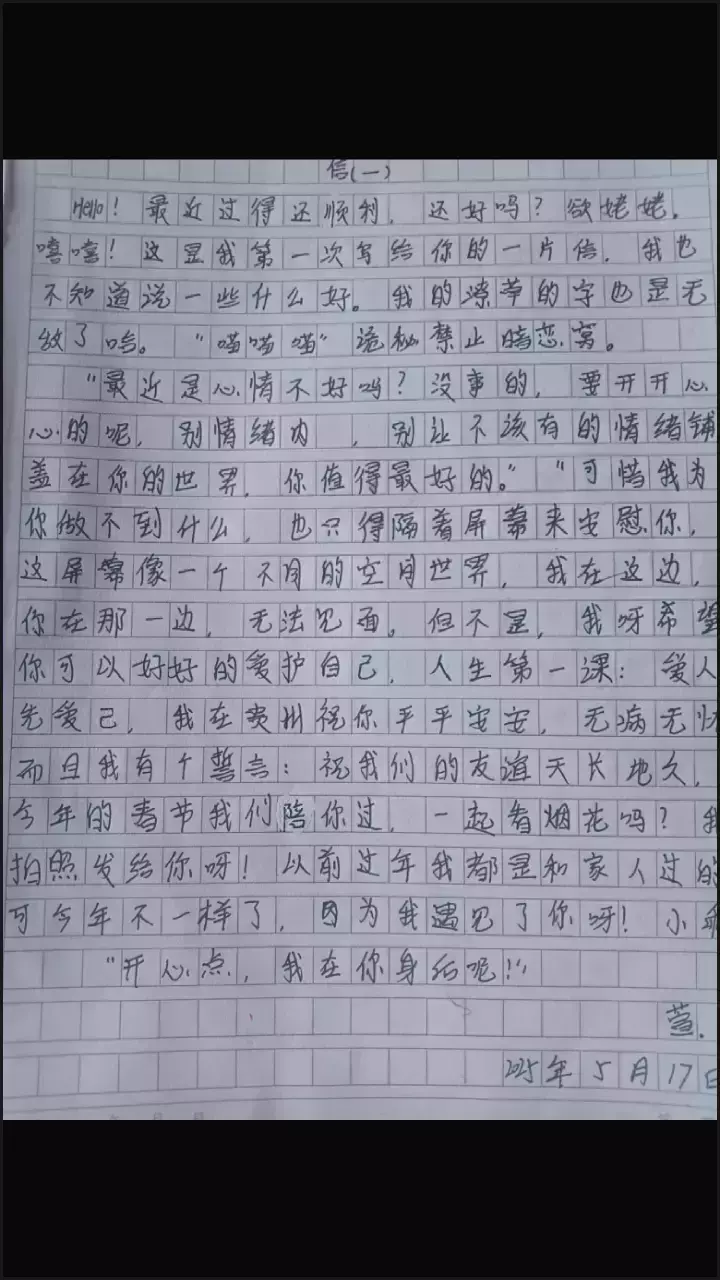 信(一)
Hello! 最近过得还顺利, 还好吗? 欲姥姥,
嘻嘻! 这是我第一次写给你的一片信, 我也
不知道说一些什么好。我的潦草的字也是无
敌了哈。 "喵喵喵" 诡秘禁止暗恋窝。
"最近是心情不好吗? 没事的, 要开开心
心的呢, 别情绪内 , 别让不该有的情绪铺
盖在你的世界, 你值得最好的。" "可惜我为
你做不到什么, 也只得隔着屏幕来安慰你,
这屏幕像一个不同的空间世界, 我在这边,
你在那一边, 无法见面。但不是, 我呀希望
你可以好好的爱护自己, 人生第一课: 爱人
先爱己, 我在贵州祝你平平安安, 无病无忧
而且我有个誓言: 祝我们的友谊天长地久,
今年的春节我们陪你过, 一起看烟花吗? 我
拍照发给你呀! 以前过年我都是和家人过的
可今年不一样了, 因为我遇见了你呀! 小乖
"开心点, 我在你身后呢!"
萱.
2025年5月17日